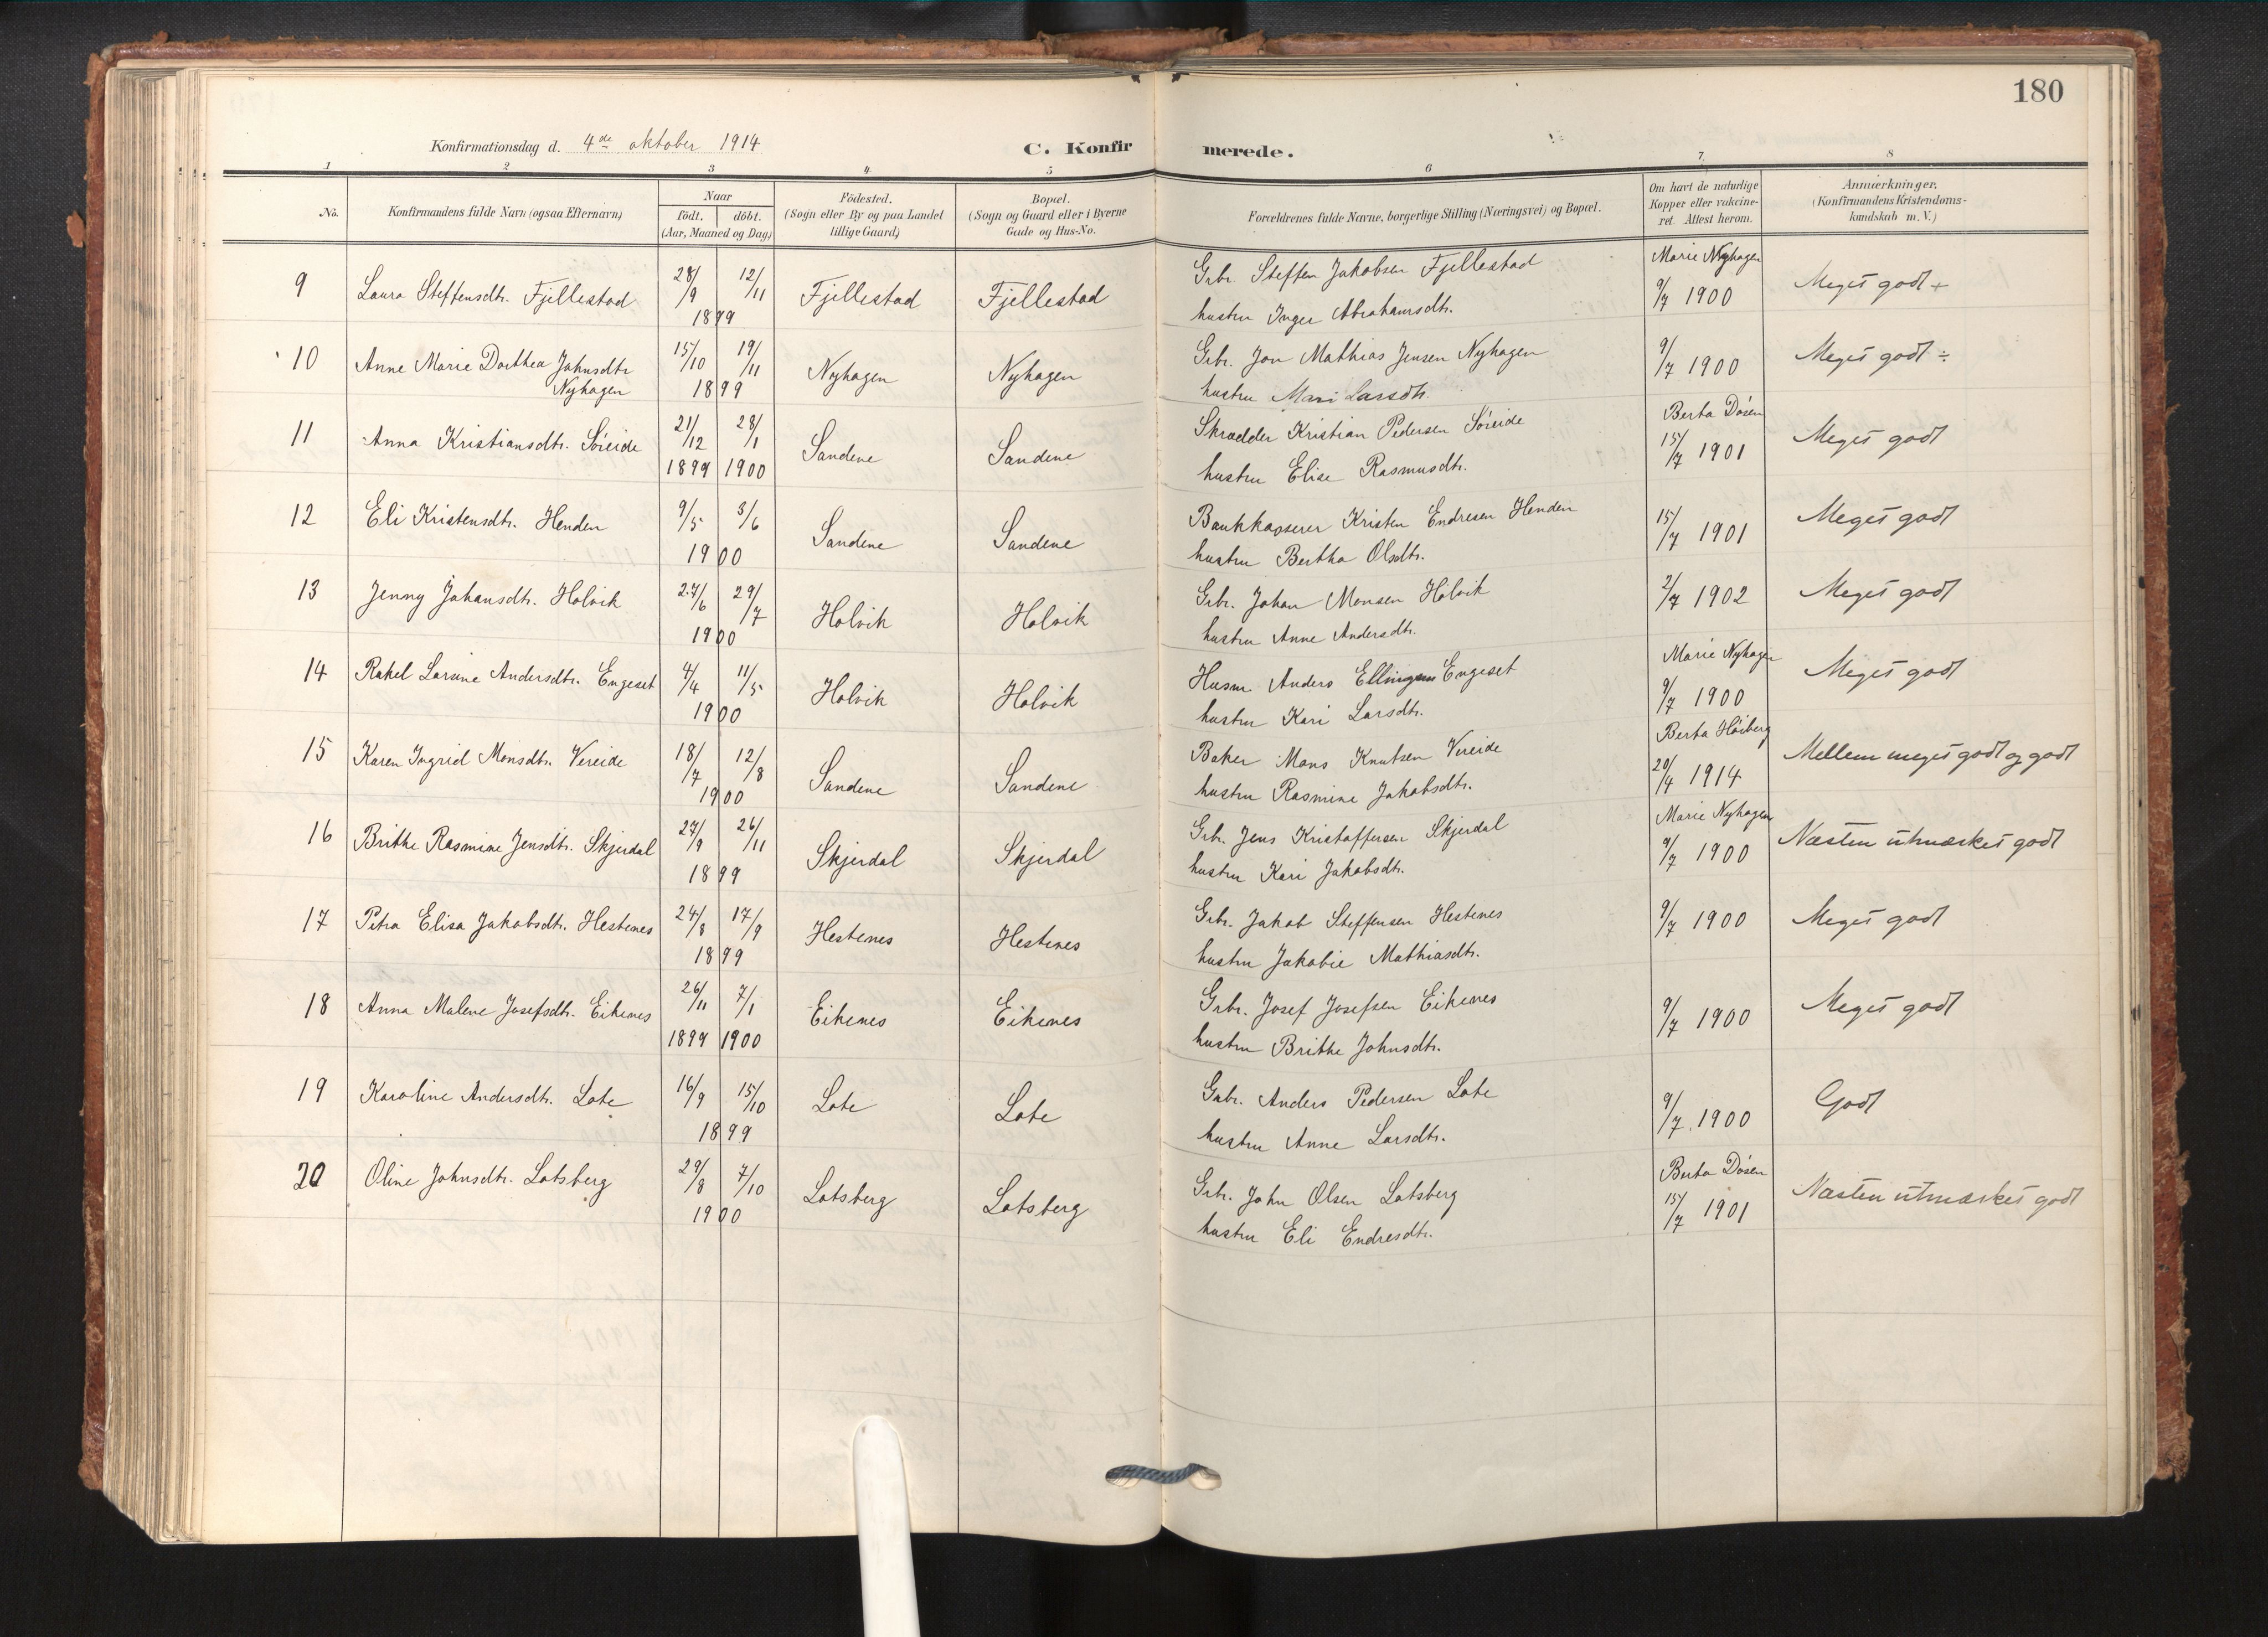 180
Konfirmationsdag d. 4de oktober 1914
C. Konfirmerede.
1 2 3 4 5 6 7 8
No.
Konfirmandens fulde Navn (ogsaa Efternavn)
Naar
födt. döbt.
(Aar, Maaned og Dag)
Födested.
(Sogn eller By og paa Landet
tillige Gaard)
Bopæl.
(Sogn og Gaard eller i Byerne
Gade og Hus-No.
Forældrenes fulde Navne, borgerlige Stilling (Næringsvei) og Bopæl.
Om havt de naturlige
Kopper eller vakcine-
ret. Attest herom.
Anmærkninger.
(Konfirmandens Kristendoms-
kundskab m.V.)
9 Laura Steffensdtr. Fjellestad 28/9 12/11 Fjellestad Fjellestad Grbr. Steffen Jakobsen Fjellestad Marie Nyhagen Meget godt +
1899 hustru Inger Abrahamsdtr. 9/7 1900
10 Anne Marie Dorthea Johnsdtr 15/10 19/11 Nyhagen Nyhagen Grbr. Jon Mathias Jensen Nyhagen 9/7 1900 Meget godt ÷
Nyhagen 1899 hustru Mari Larsdtr.
11 Anna Kristiansdtr. Søreide 21/12 28/1 Sandene Sandene Skrædder Kristian Pedersen Søreide Berta Døsen Meget godt
1899 1900 hustru Elise Rasmusdtr. 15/7 1901
12 Eli Kristensdtr. Henden 9/5 3/6 Sandene Sandene Bankkasserer Kristen Endresen Henden 15/7 1901 Meget godt
1900 hustru Bertha Olsdtr.
13 Jenny Johansdtr. Holvik 27/6 29/7 Holvik Holvik Grbr. Johan Monsen Holvik 2/7 1902 Meget godt
1900 hustru Anne Andersdtr.
14 Rakel Larsine Andersdtr. Engeset 4/4 11/5 Holvik Holvik Husm Anders Ellingsen Engeset Marie Nyhagen Meget godt
1900 hustru Kari Larsdtr. 9/7 1900
15 Karen Ingrid Monsdtr. Vereide 18/7 12/8 Sandene Sandene Baker Mons Knutsen Vereide Berta Høiberg Mellem meget godt og godt
1900 hustru Rasmine Jakobsdtr. 20/4 1914
16 Brithe Rasmine Jensdtr. Skjerdal 27/9 26/11 Skjerdal Skjerdal Grbr. Jens Kristoffersen Skjerdal Marie Nyhagen Næsten utmærket godt
1899 hustru Kari Jakobsdtr. 9/7 1900
17 Petra Elisa Jakobsdtr. Hestenes 24/8 17/9 Hestenes Hestenes Grbr. Jakob Steffensen Hestenes 9/7 1900 Meget godt
1899 hustru Jakobie Mathiasdtr.
18 Anna Malene Josefsdtr. Eikenes 26/11 7/1 Eikenes Eikenes Grbr. Josef Josefsen Eikenes 9/7 1900 Meget godt
1899 1900 hustru Brithe Johnsdtr.
19 Karoline Andersdtr. Lote 16/9 15/10 Lote Lote Gbr. Anders Pedersen Lote 9/7 1900 Godt
1899 hustru Anne Larsdtr.
20 Oline Johnsdtr. Lotsberg 29/8 7/10 Lotsberg Lotsberg Grbr. John Olsen Lotsberg Berta Døsen Næsten utmærket godt
1900 hustru Eli Endresdtr. 15/7 1901